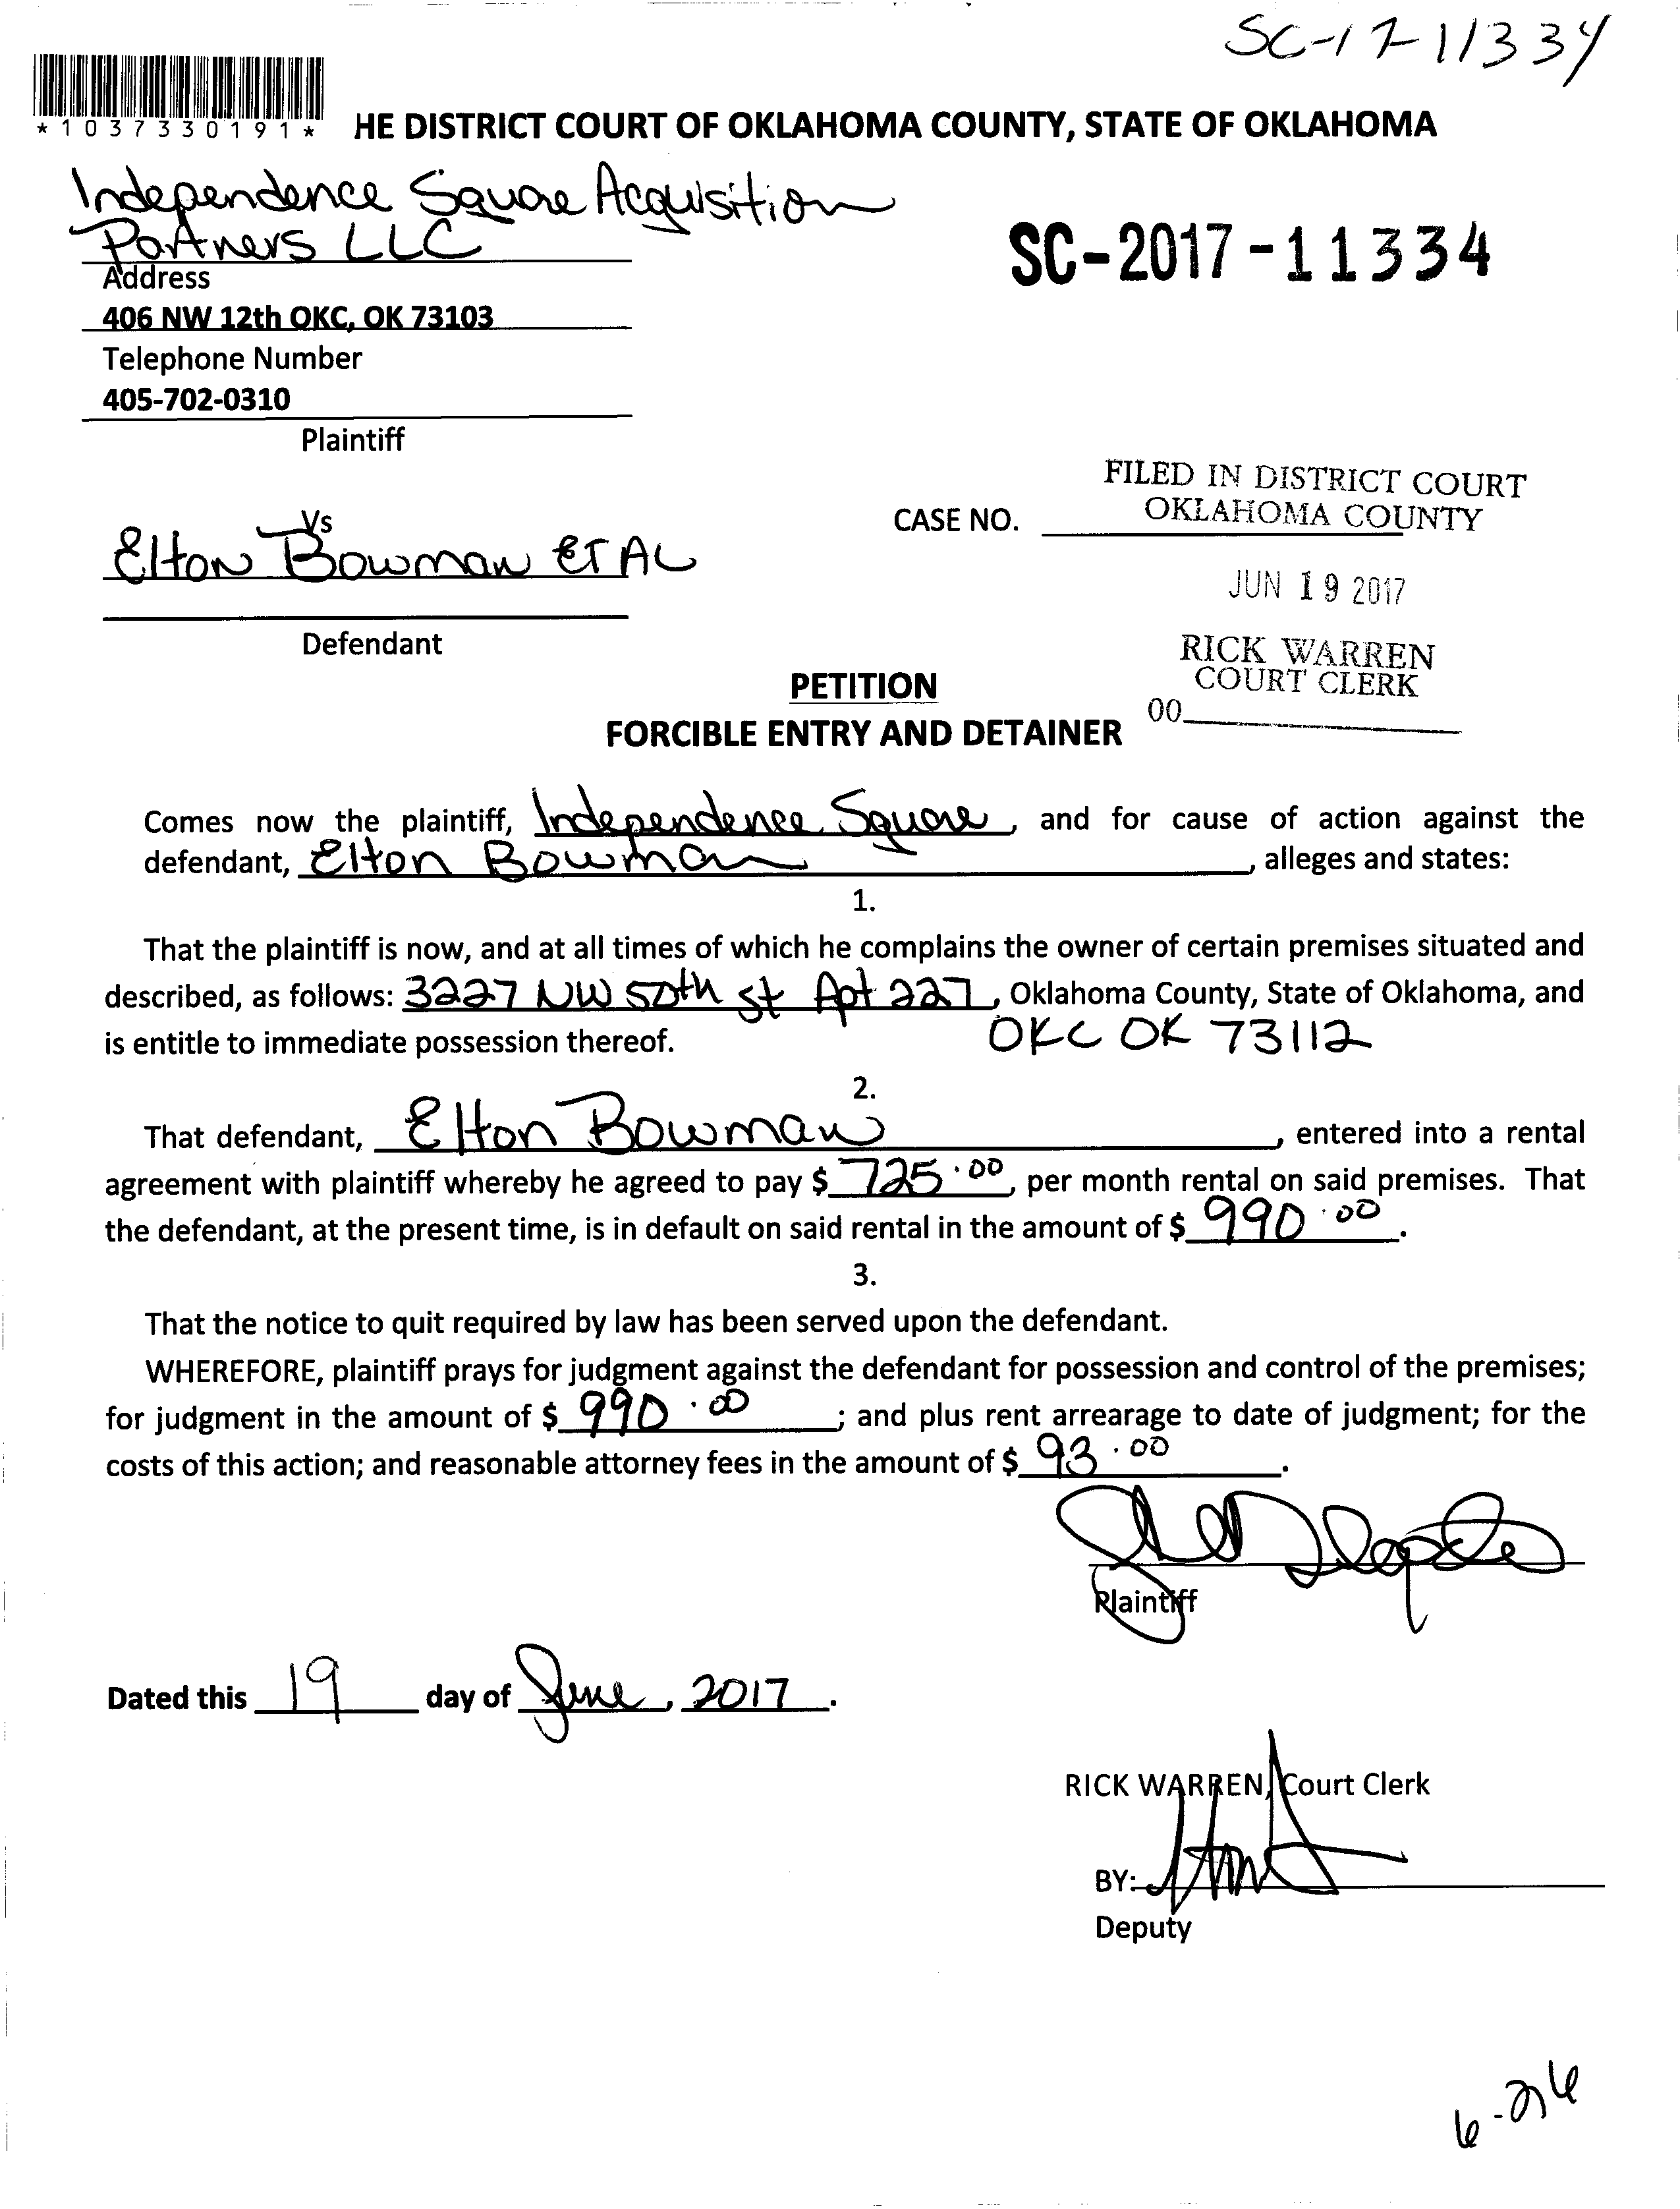 SC-17-11334
*1037330191*
HE DISTRICT COURT OF OKLAHOMA COUNTY, STATE OF OKLAHOMA
Independence Square Acquisition
Partners LLC
Address
406 NW 12th OKC, OK 73103
Telephone Number
405-702-0310
Plaintiff
SC-2017-11334
Vs
Elton Bowman ET AL
Defendant
CASE NO.
FILED IN DISTRICT COURT
OKLAHOMA COUNTY
JUN 19 2017
RICK WARREN
COURT CLERK
00
PETITION
FORCIBLE ENTRY AND DETAINER
Comes now the plaintiff, Independence Square, and for cause of action against the
defendant, Elton Bowman, alleges and states:
1.
That the plaintiff is now, and at all times of which he complains the owner of certain premises situated and
described, as follows: 3227 NW 50th st Apt 227, Oklahoma County, State of Oklahoma, and
is entitle to immediate possession thereof. OKC OK 73112
2.
That defendant, Elton Bowman, entered into a rental
agreement with plaintiff whereby he agreed to pay $ 725.00, per month rental on said premises. That
the defendant, at the present time, is in default on said rental in the amount of $ 990.00.
3.
That the notice to quit required by law has been served upon the defendant.
WHEREFORE, plaintiff prays for judgment against the defendant for possession and control of the premises;
for judgment in the amount of $ 990.00; and plus rent arrearage to date of judgment; for the
costs of this action; and reasonable attorney fees in the amount of $ 93.00.
Plaintiff
Dated this 19 day of June, 2017.
RICK WARREN, Court Clerk
BY:
Deputy
6-26